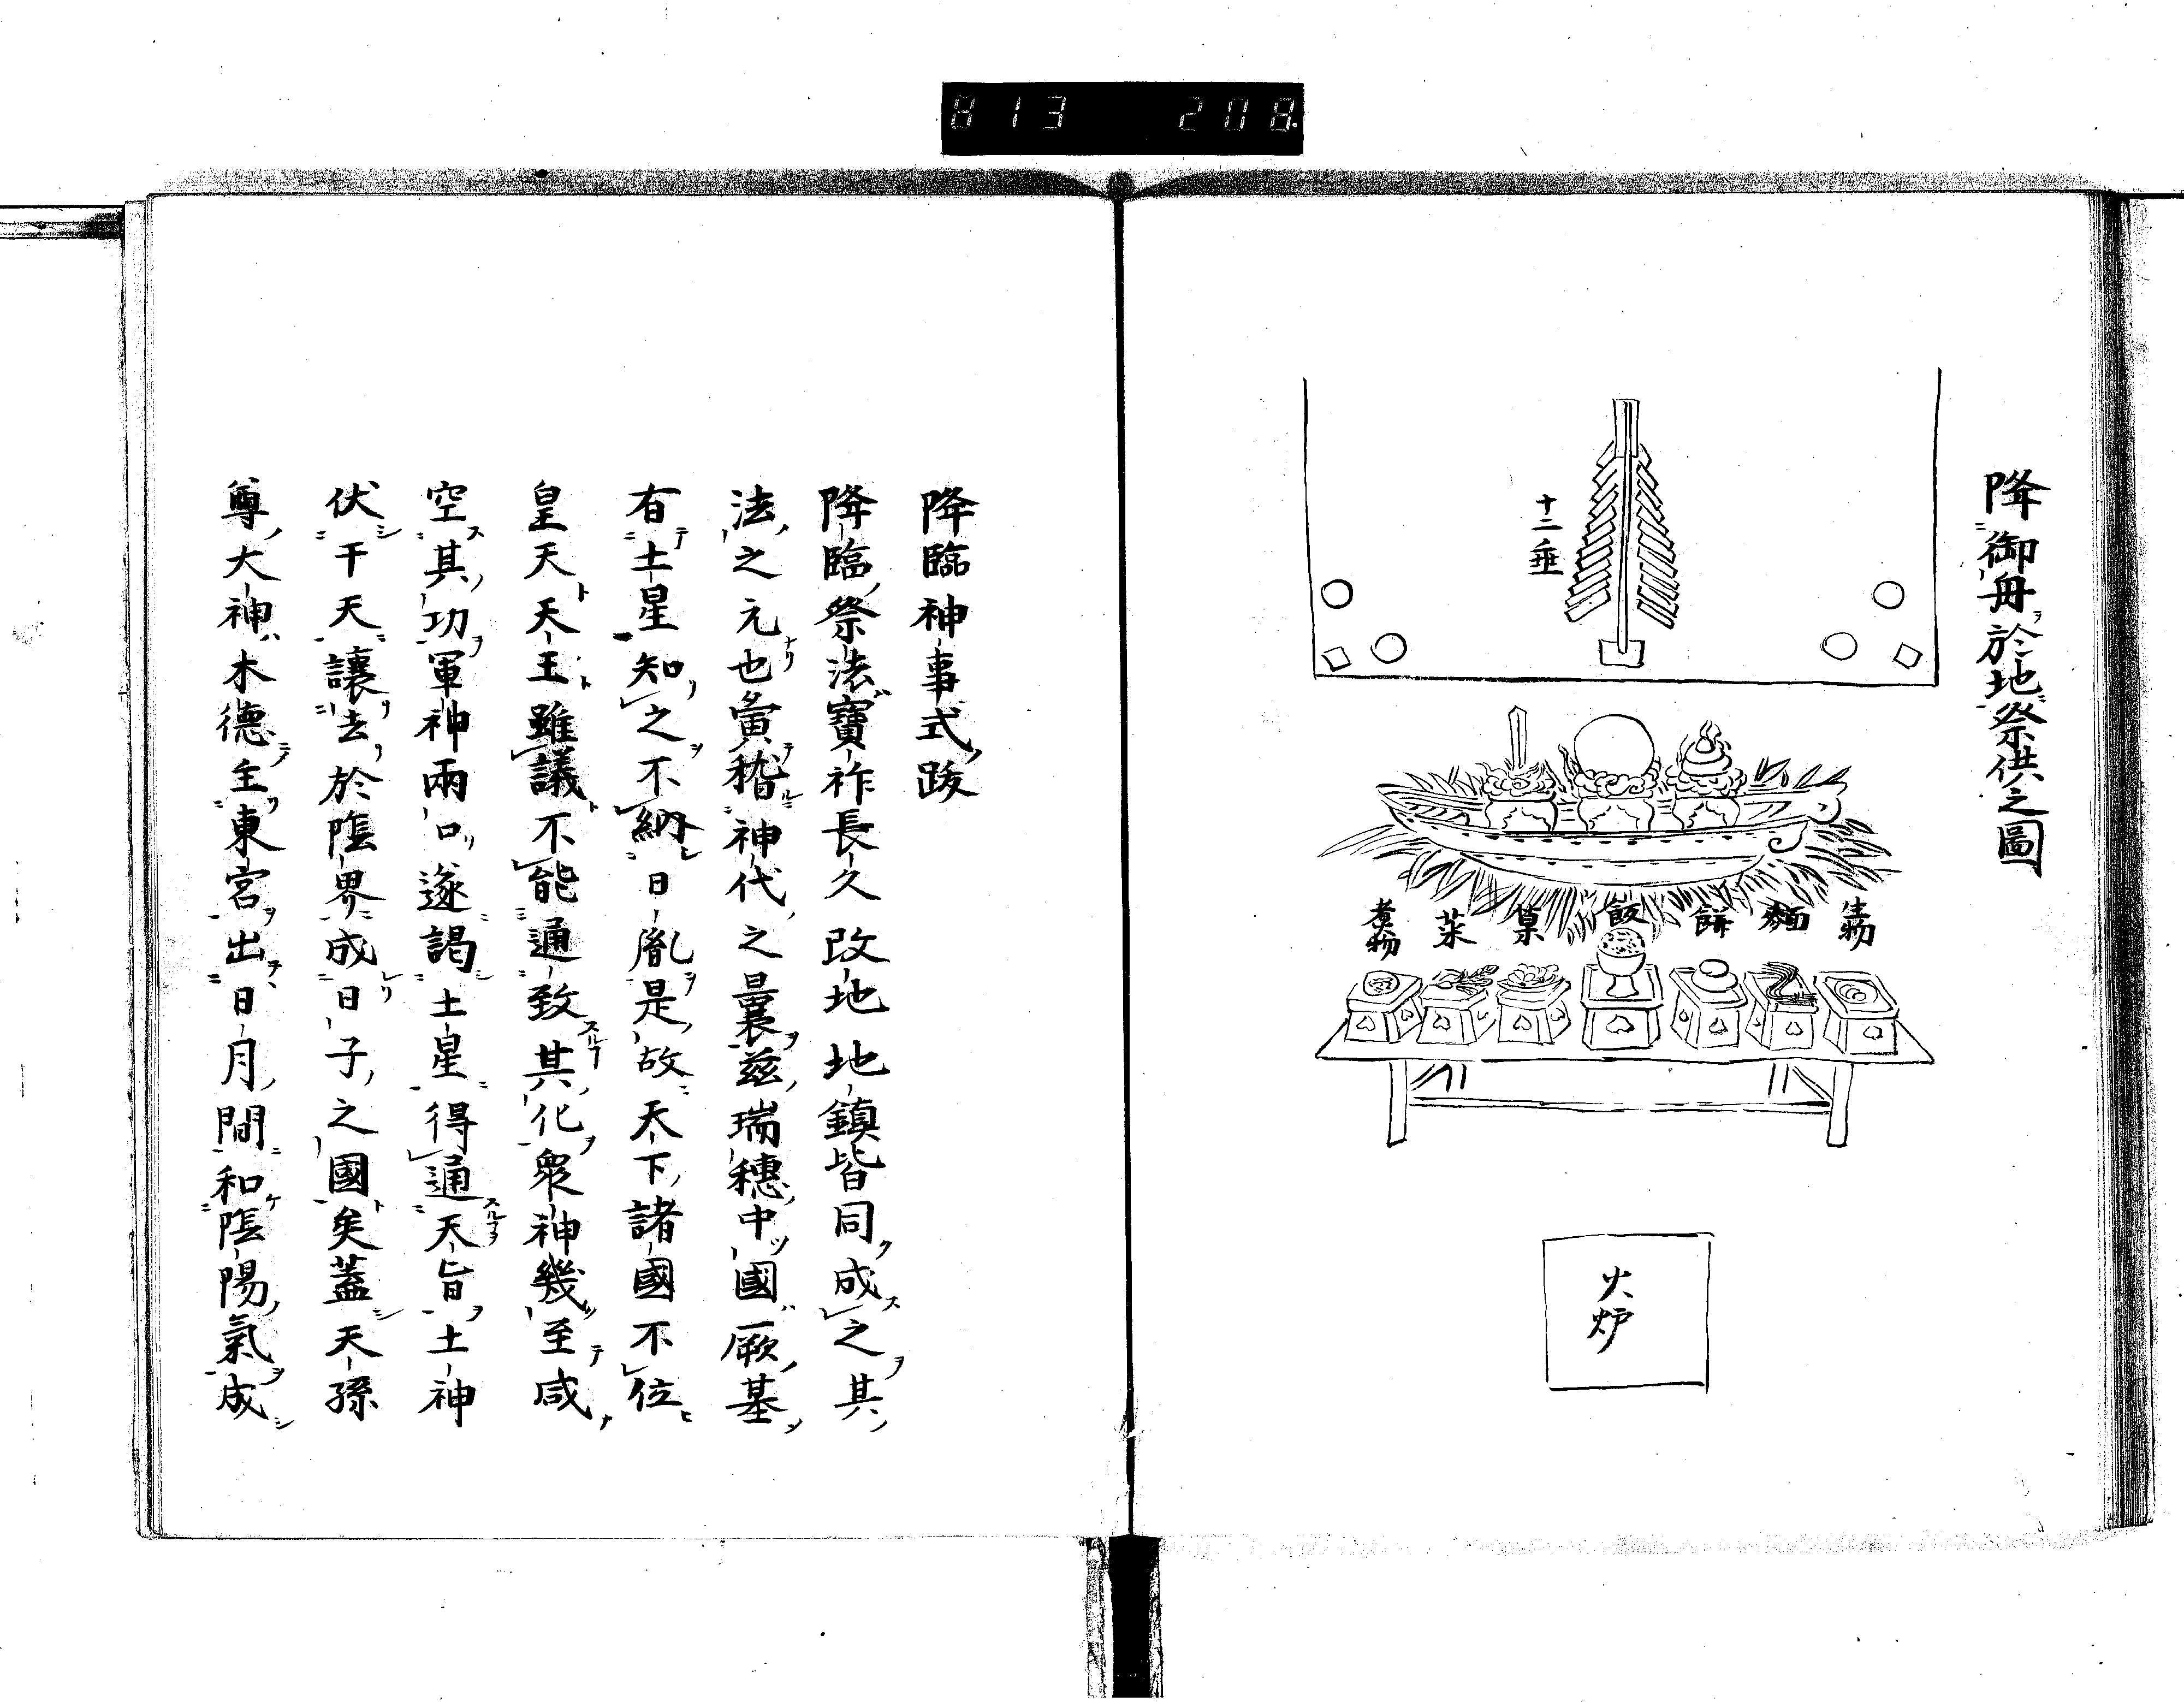 813 208
降御舟於地祭供之圖
十二垂
生物
麺
餅
飯
菓
菜
煮物
火炉
降臨神事式跋
降臨祭法寶祚長久改地地鎮皆同成之其
法之元也夤稽神代之曩茲瑞穗中國厥基
有土星知之不納日胤是故天下諸國不位
皇天天王雖議不能通致其化衆神幾至咸
空其功軍神兩口遂謁土星得通天旨土神
伏干天讓去於陰界成日子之國矣蓋天孫
尊大神木德主東宮出日月間和陰陽氣成